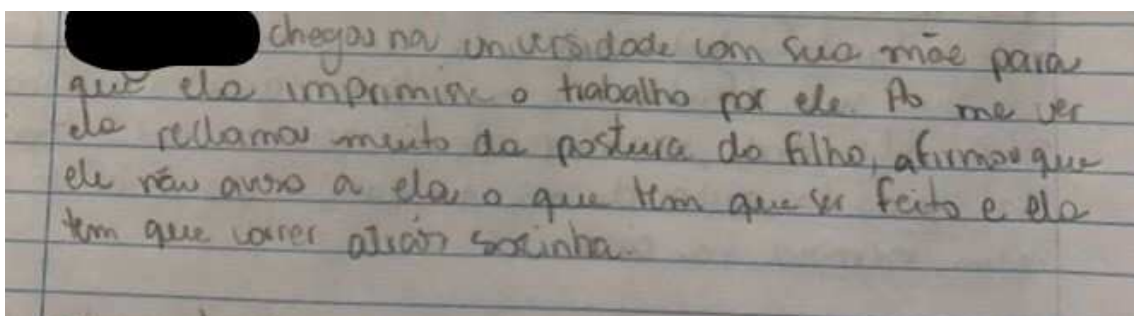 chegou na universidade com sua mãe para
que ela imprimisse o trabalho por ele. Ao me ver
ela reclamou muito da postura do filho, afirmou que
ele não avisa a ela o que tem que ser feito e ela
tem que correr atrás sozinha.